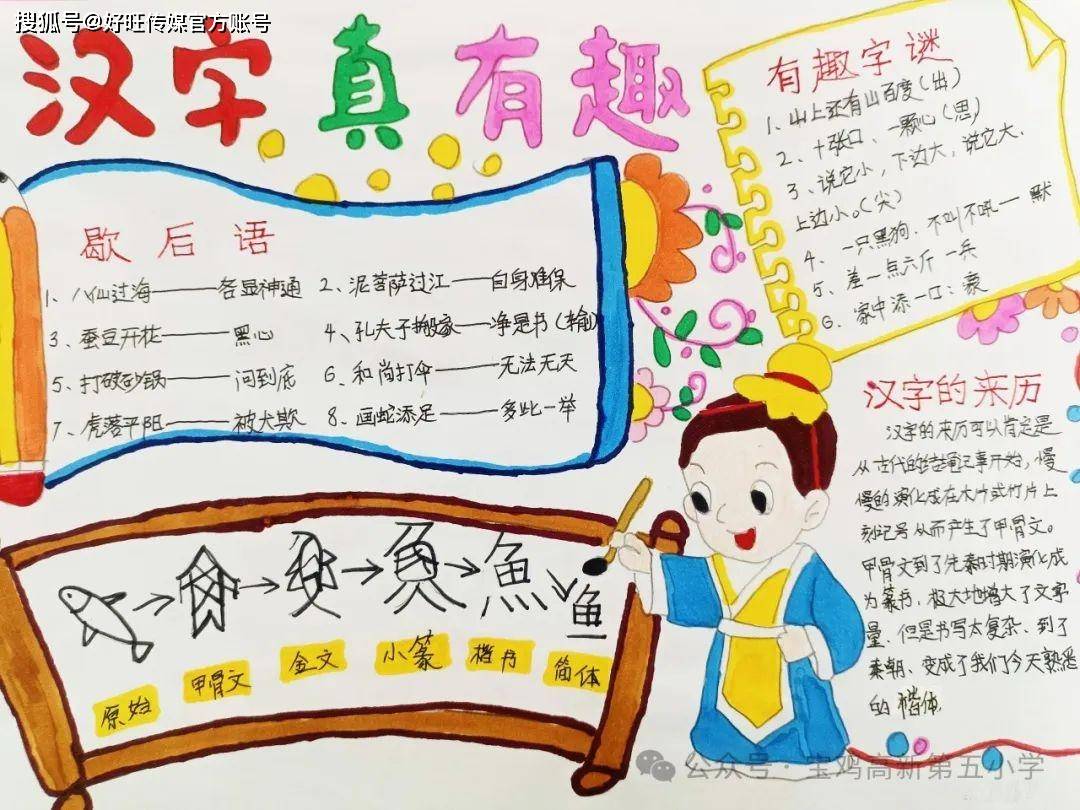 搜狐号@好旺传媒官方账号
汉字真有趣
歇后语
1、八仙过海——各显神通 2、泥菩萨过江——自身难保
3、蚕豆开花——黑心 4、孔夫子搬家——净是书(输)
5、打破砂锅——问到底 6、和尚打伞——无法无天
7、虎落平阳——被犬欺 8、画蛇添足——多此一举
有趣字谜
1、山上还有山百度(出)
2、十张口、一颗心(思)
3、说它小,下边大,说它大,
上边小。(尖)
4、一只黑狗,不叫不吼一默
5、差一点六斤一兵
6、家中添一口:豪
汉字的来历
汉字的来历可以肯定是
从古代的结绳记事开始,慢
慢的演化成在木片或竹片上
刻记号从而产生了甲骨文。
甲骨文到了先秦时期演化成
为篆书,极大地增大了文字
量,但是书写太复杂、到了
秦朝、变成了我们今天熟悉
的楷体.
魚 鱼
原始 甲骨文 金文 小篆 楷书 简体
公众号·宝鸡高新第五小学